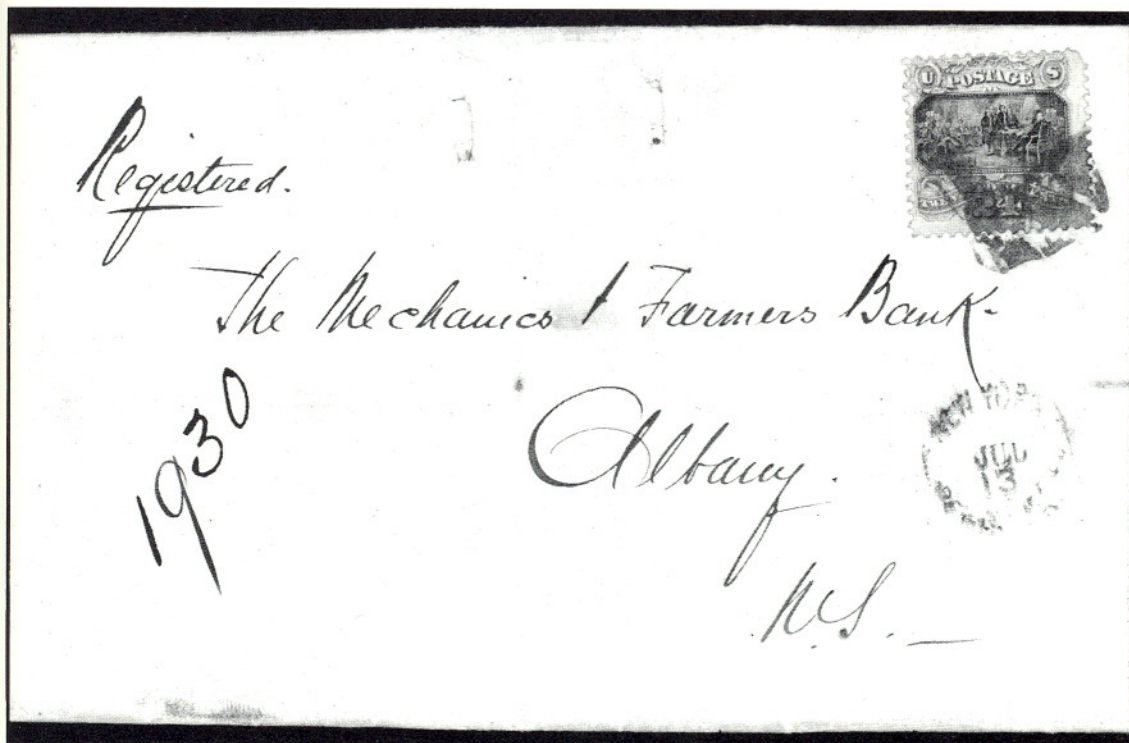 U POSTAGE S
Registered.
The Mechanics & Farmers Bank.
1930
Albany.
N.Y.
NEW YORK
JUL
13